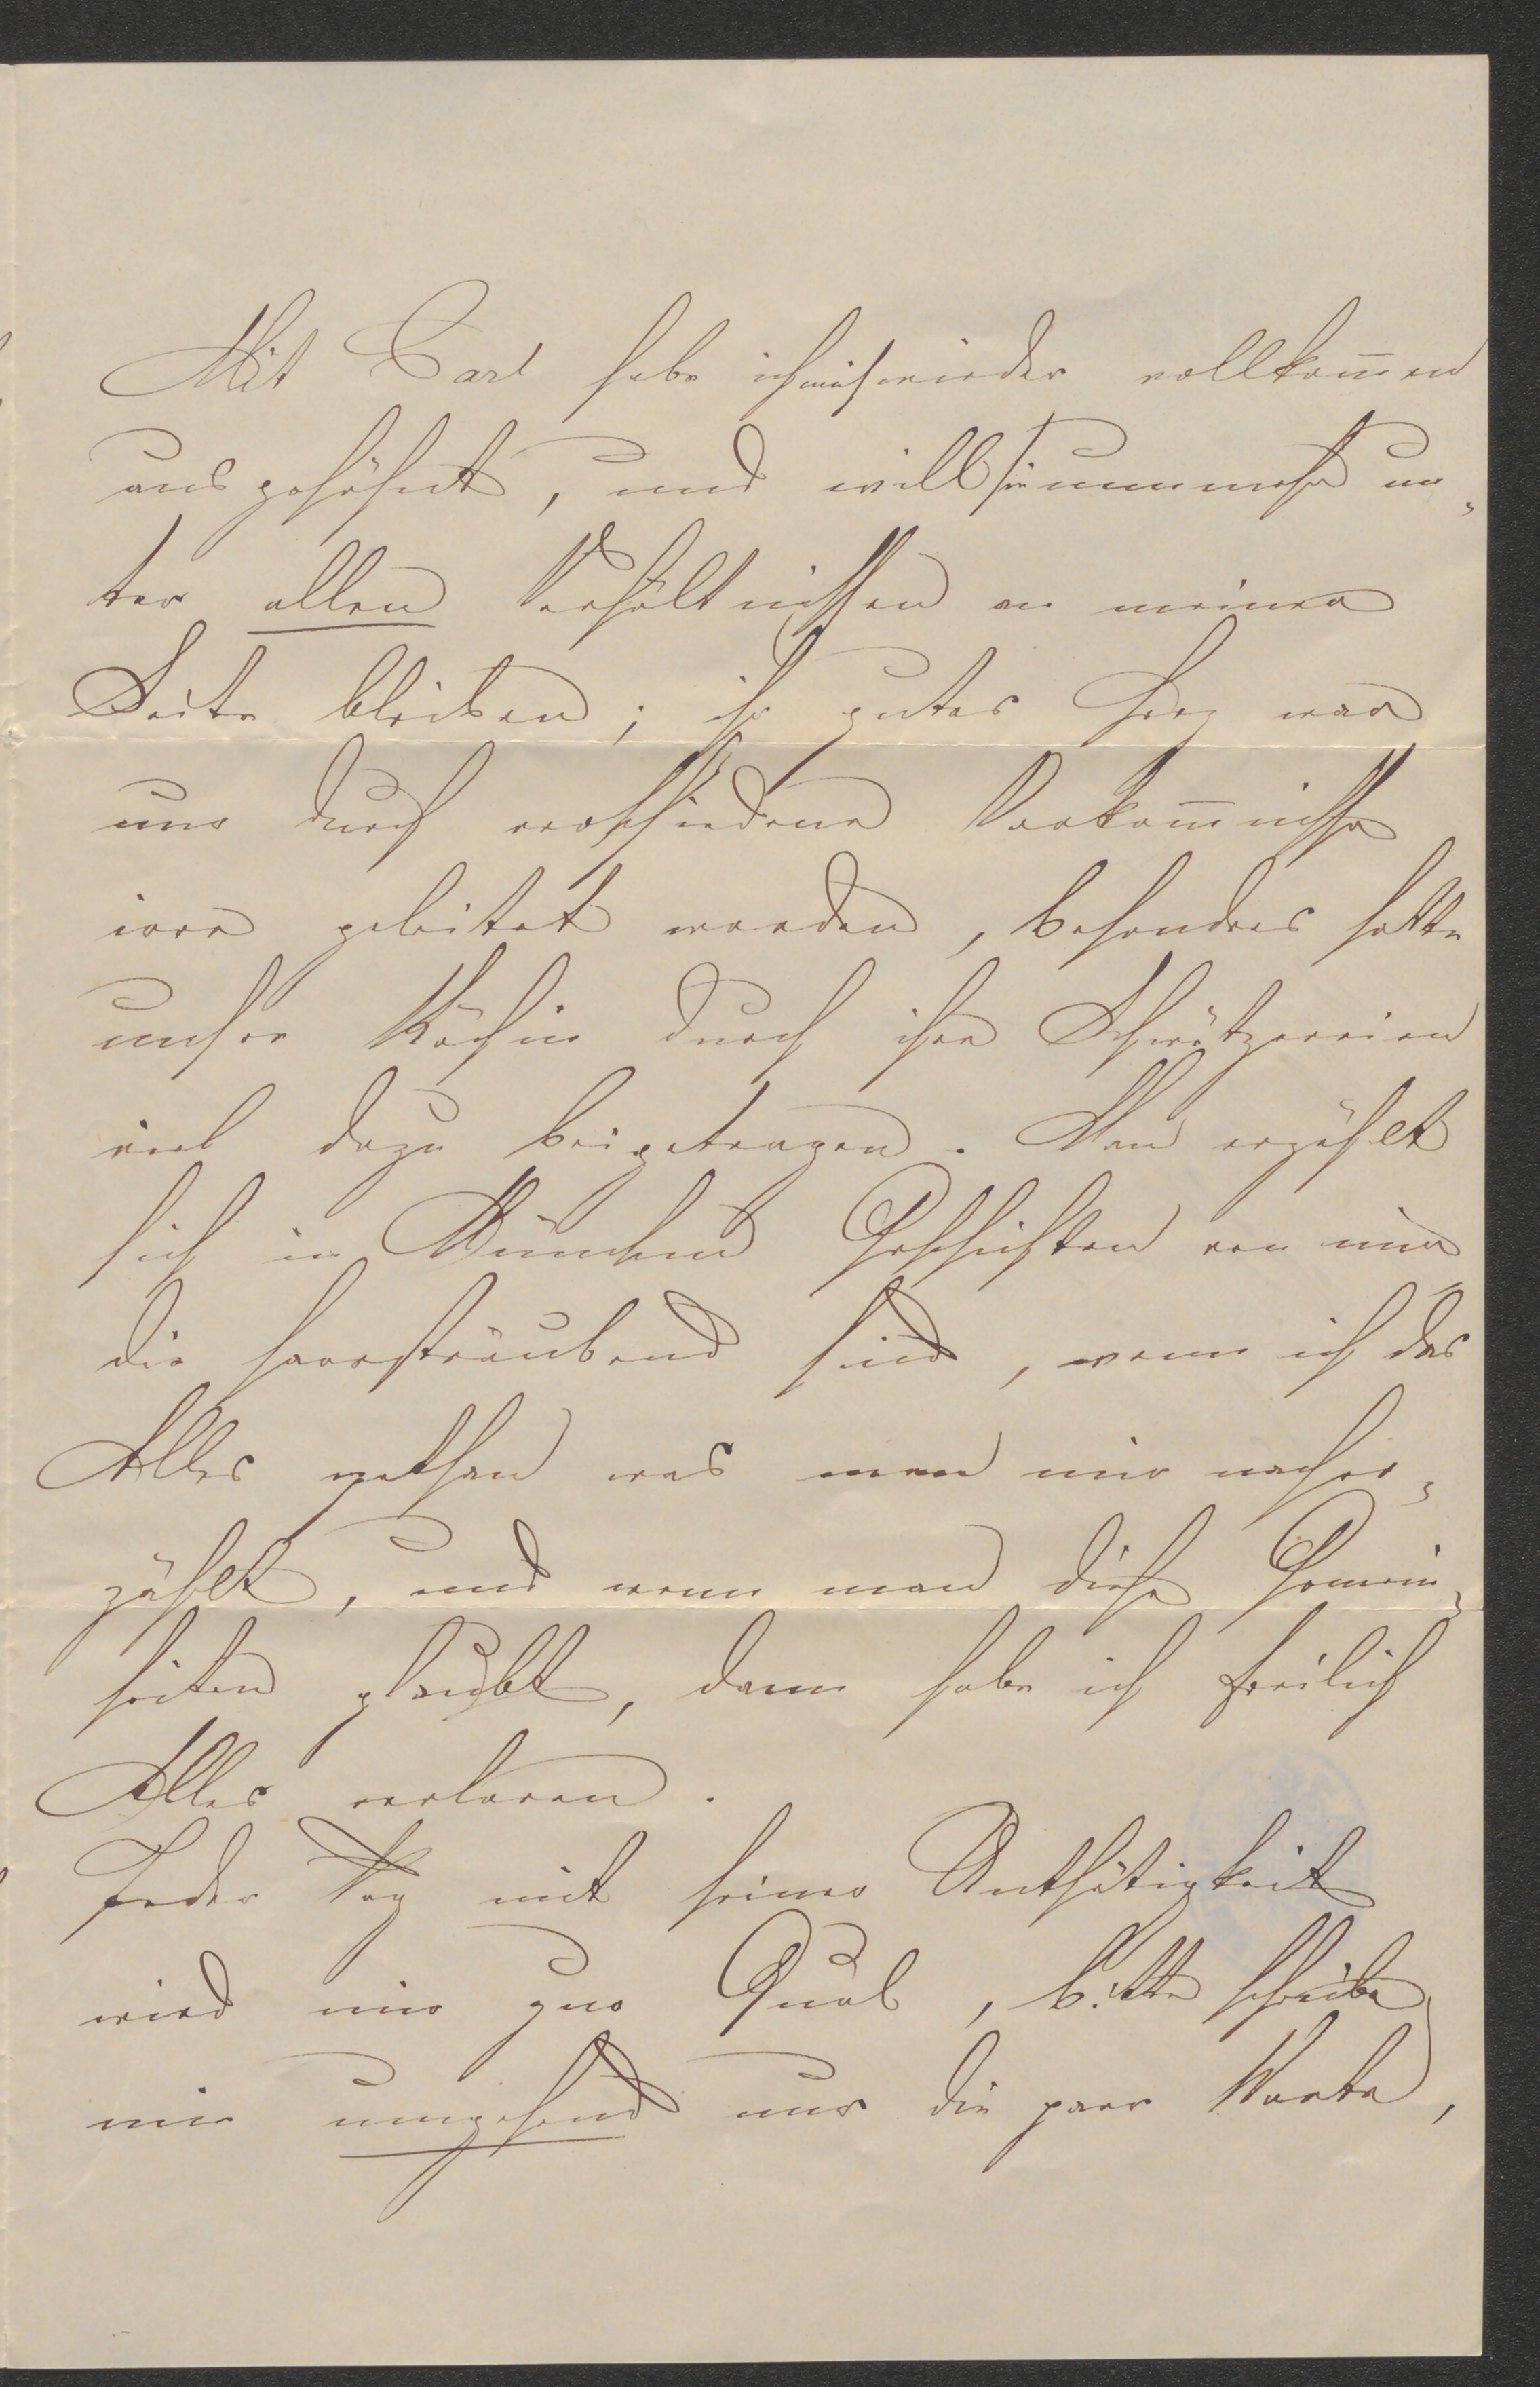 Mit Carl habe ich mich wieder vollkom̅en
ausgesöhnt, und will sie nunmehr un¬
ter allen Verhältnissen an meiner
Seite bleiben; ihr gutes Herz war
nur durch verschiedene Vorkom̅nisse
irre geleitet worden, besonders hatte
unsre Köchin durch ihre Schwätzereien
viel dazu beigetragen. Man erzählt
sich in München Geschichten von mir
die haarsträubend sind, wenn ich das
Alles gethan was man mir nacher¬
zählt, und wenn man diese Gemein¬
heiten glaubt, dann habe ich freilich
Alles verloren.
Jeder Tag mit seiner Unthätigkeit
wird mir zur Qual, bitte schreibe
mir umgehend nur die paar Worte,